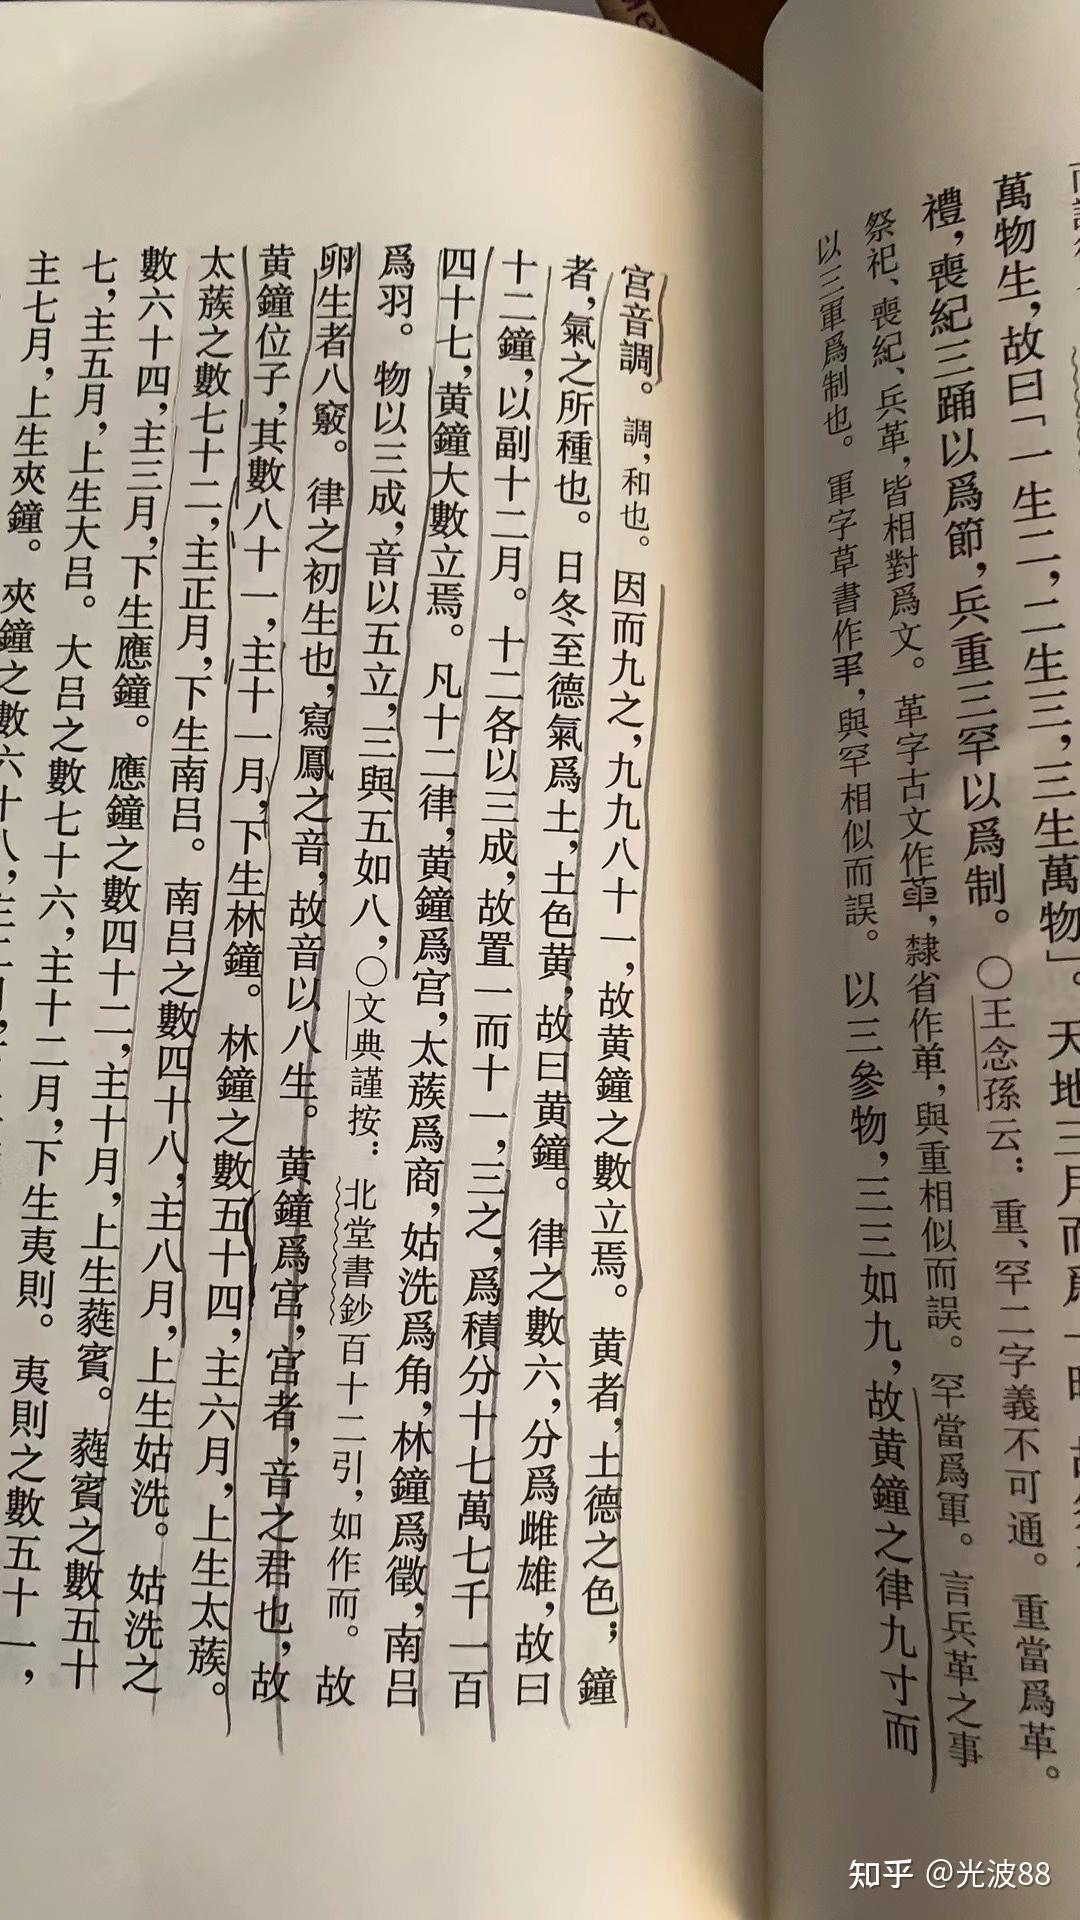 萬物生，故曰「一生二，二生三，三生萬物」。天地三月而爲一時，
禮，喪紀三踊以爲節，兵重三罕以爲制。○王念孫云：重、罕二字義不可通。重當爲革。
罕當爲軍。言兵革之事
祭祀、喪紀、兵革，皆相對爲文。革字古文作𠦶，隸省作単，與重相似而誤。
以三軍爲制也。軍字草書作𦉪，與罕相似而誤。以三參物，三三如九，故黄鐘之律九寸而
宫音調。調，和也。因而九之，九九八十一，故黄鐘之數立焉。黄者，土德之色；鐘
者，氣之所種也。日冬至德氣爲土，土色黄，故曰黄鐘。律之數六，分爲雌雄，故曰
十二鐘，以副十二月。十二各以三成，故置一而十一，三之，爲積分十七萬七千一百
四十七，黄鐘大數立焉。凡十二律，黄鐘爲宫，太蔟爲商，姑洗爲角，林鐘爲徵，南吕
爲羽。物以三成，音以五立，三與五如八，○文典謹按：北堂書鈔百十二引，如作而。故
卵生者八竅。律之初生也，寫鳳之音，故音以八生。黄鐘爲宫，宫者，音之君也，故
黄鐘位子，其數八十一，主十一月，下生林鐘。林鐘之數五十四，主六月，上生太蔟。
太蔟之數七十二，主正月，下生南吕。南吕之數四十八，主八月，上生姑洗。姑洗之
數六十四，主三月，下生應鐘。應鐘之數四十二，主十月，上生蕤賓。蕤賓之數五十
七，主五月，上生大吕。大吕之數七十六，主十二月，下生夷則。夷則之數五十一，
主七月，上生夾鐘。夾鐘之數六十八，主二月，